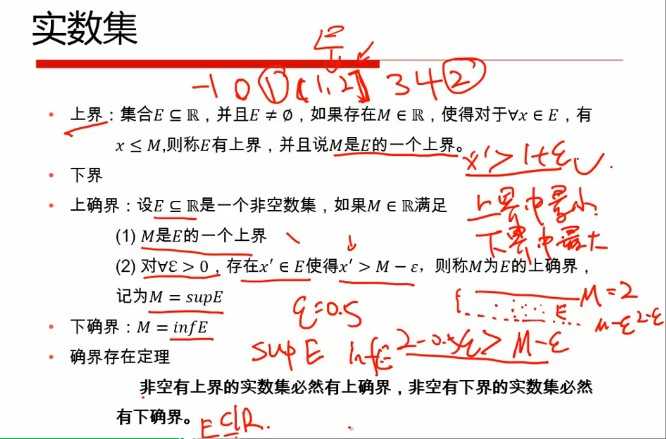 实数集
E
-1 0 ① [1,2] 3 4 ②
• 上界：集合E ⊆ ℝ，并且E ≠ ∅，如果存在M ∈ ℝ，使得对于∀x ∈ E，有
x ≤ M,则称E有上界，并且说M是E的一个上界。
x' > 1+ε
• 下界
• 上确界：设E ⊆ ℝ是一个非空数集，如果M ∈ ℝ满足
上界中最小
(1) M是E的一个上界
下界中最大
(2) 对∀ε > 0，存在x′ ∈ E使得x′ > M − ε，则称M为E的上确界，
记为M = supE
M=2
E
M-ε 2-ε
ε=0.5
• 下确界：M = infE
sup E inf E
M-ε
• 确界存在定理
非空有上界的实数集必然有上确界，非空有下界的实数集必然
有下确界。
E ⊆ R.